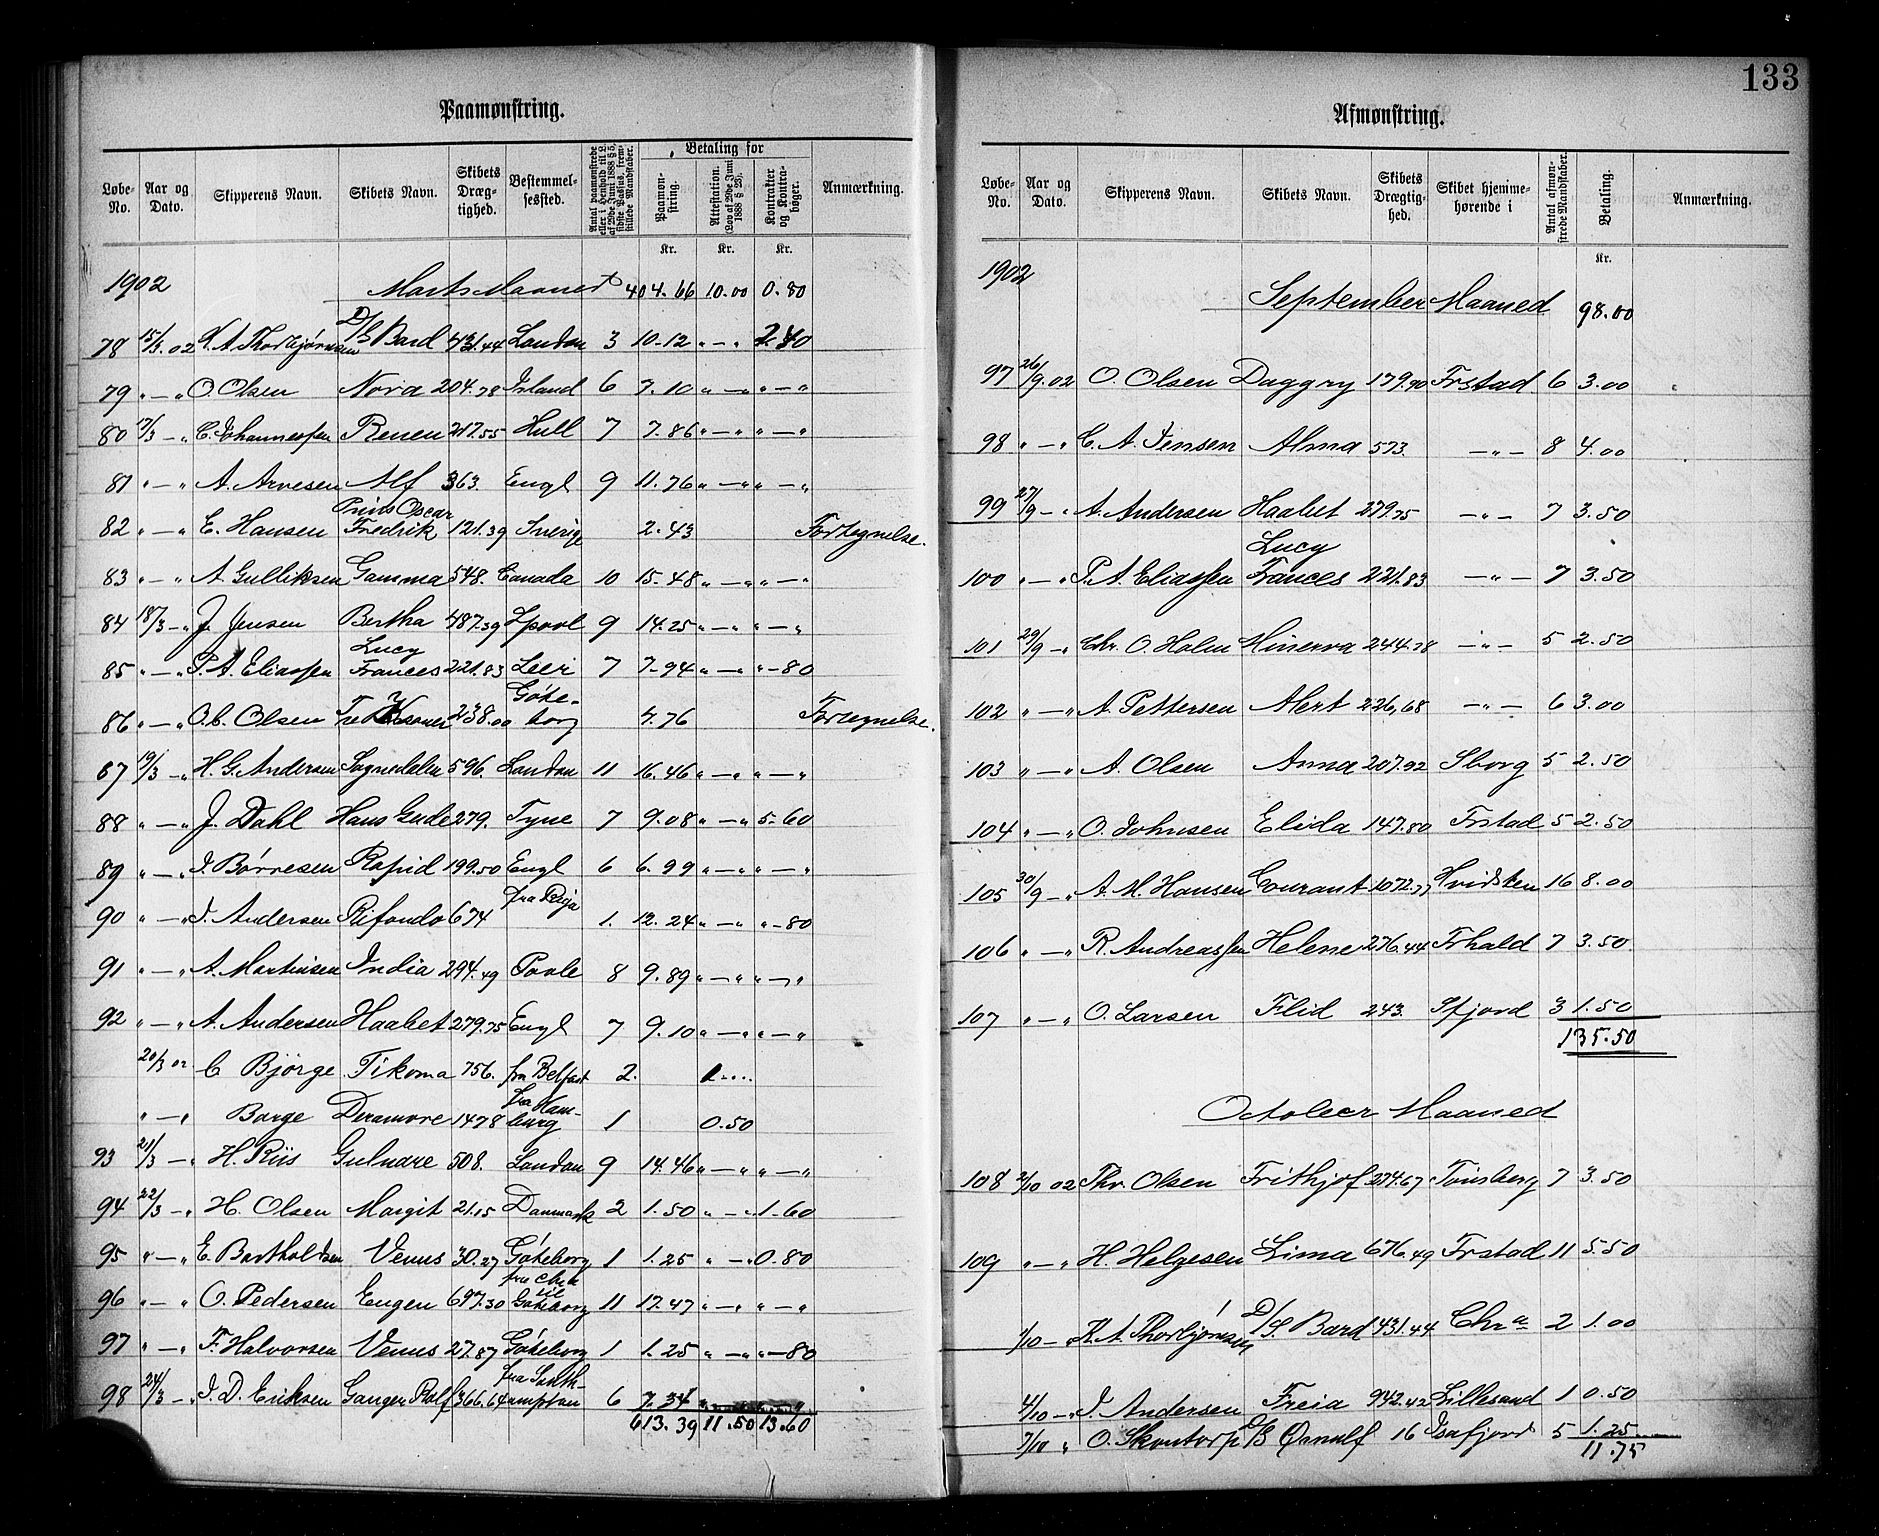 133
Paamønstring.
Løbe-No. Aar og Dato. Skipperens Navn. Skibets Navn. Skibets Drægtighed. Bestemmelsessted. Antal paamønstrede eller i Henhold til L. af 29de Juni 1888 § 5, sidste Passus, fremstillede Mandskaber. Betaling for Paamønstring. Attestation. (Lov af 29de Juni 1888 § 23). Kontrakter og Kontrabøger. Anmærkning.
Kr. Kr. Kr.
1902 Marts Maaned 404.66 10.00 0.80
78 15/3.02 K. A. Thorbjørnsen D/S Bard 431.44 London 3 10-12 „ — „ 2.40
79 „ — „ O. Olsen Nora 204.78 Island 6 7.10 „ — „ „ — „
80 17/3 — „ C. Johannessen Renen 217.55 Hull 7 7.86 „ — „ „ — „
81 „ — „ A. Arvesen Alf 363. Engl 9 11.76 „ — „ „ — „
82 „ — „ E. Hansen Prins Oscar Fredrik 121.39 Sverige 2.43 Fortegnelse.
83 „ — „ A Gulliksen Gamma 548. Canada 10 15.48 „ — „ „ — „
84 18/3 — „ J. Jensen Bertha 487.39 Lpool 9 14.25 „ — „ „ — „
85 „ — „ P. A. Eliassen Lucy Frances 221.83 Leer 7 7-94 „ — „ „ - 80
86 „ — „ O. C. Olsen Tre 238.00 Göteborg 4.76 Fortegnelse.
87 19/3 — „ H. G. Andersen Sognedalen 596. London 11 16.46 „ — „ „ — „
88 „ — „ J. Dahl Hans Gude 279. Tyne 7 9.08 „ — „ 5-60
89 „ — „ J. Børresen Rapid 199.50 Engl 6 6.99 „ — „ „ — „
90 „ — „ J. Andersen Rifondo 674 fra Riga 1. 12.24 „ — „ „ - 80
91 „ — „ A. Martinsen India 294.49 Poole 8 9.89 „ — „ „ — „
92 „ — „ A. Andersen Haabet 279.75 Engl 7 9.10 „ — „ „ — „
20/3 02 C Bjørge Tikoma 756. fra Belfast 2. 1....
„ — „ Borge Deramore 1478 fra Hamburg 1 0.50
93 21/3 — „ H. Riis Gulnare 508. London 9 14.46 „ — „ „ — „
94 22/3 — „ H. Olsen Margit 21.15 Danmark 2 1.50 „ — „ 1-60
95 „ — „ E. Bartholdsen Venus 30.27 Göteborg 1 1.25 „ — „ 0.80
96 „ — „ O. Pedersen Eugen 697.30 fra Chra til Göteborg 11 17.47 „ — „ „ — „
97 „ — „ F. Halvorsen Venus 27.87 Göteborg 1 1.25 „ — „ „ — 80
98 24/3 — „ J. D. Eriksen Ganger Rolf 366.64 fra Southampton 6 7.34 „
613.39 11.50 13.60
Afmønstring.
Løbe-No. Aar og Dato. Skipperens Navn. Skibets Navn. Skibets Drægtighed. Skibet hjemmehørende i Antal afmønstrede Mandskaber. Betaling. Anmærkning.
Kr.
1902 September Maaned 98.00
97 26/9.02 O. Olsen Daggry 179.90 Frstad 6 3.00
98 „ — „ C. A. Jensen Alma 573. — „ — 8 4.00
99 27/9 — „ A. Andersen Haabet 279.75 — „ — 7 3.50
100 „ — „ P. A. Eliassen Lucy Frances 221.83 — „ — 7 3.50
101 29/9 — „ Chr. O. Holm Minerva 244.78 — „ — 5 2.50
102 „ — „ A. Pettersen Alert 226,68 — „ — 6 3.00
103 „ — „ A. Olsen Anna 207.92 Sborg 5 2.50
104 „ — „ O. Johnsen Elida 147.80 Frstad 5 2.50
105 30/9 — „ A. M. Hansen Courant 1072.77 Hvidsten 16 8.00
106 „ — „ R. Andreassen Helene 276.44 Frhald 7 3.50
107 „ — „ O. Larsen Flid 243. Ifjord 3 1.50
135.50
October Maaned
108 2/10 02 Thr. Olsen Frithjof 274.67 Tønsberg 7 3.50
109 „ — „ H. Helgesen Lima 676.49 Frstad 11 5.50
1/10 — „ K. A. Thorbjørnsen D/S. Bard 431.44 Chra 2 1.00
4/10 — „ J. Andersen Freia 942.42 Lillesand 1 0.50
7/10 „ O. Skontorp D/S Ørnulf 16 Isafjord 5 1.25
11.75